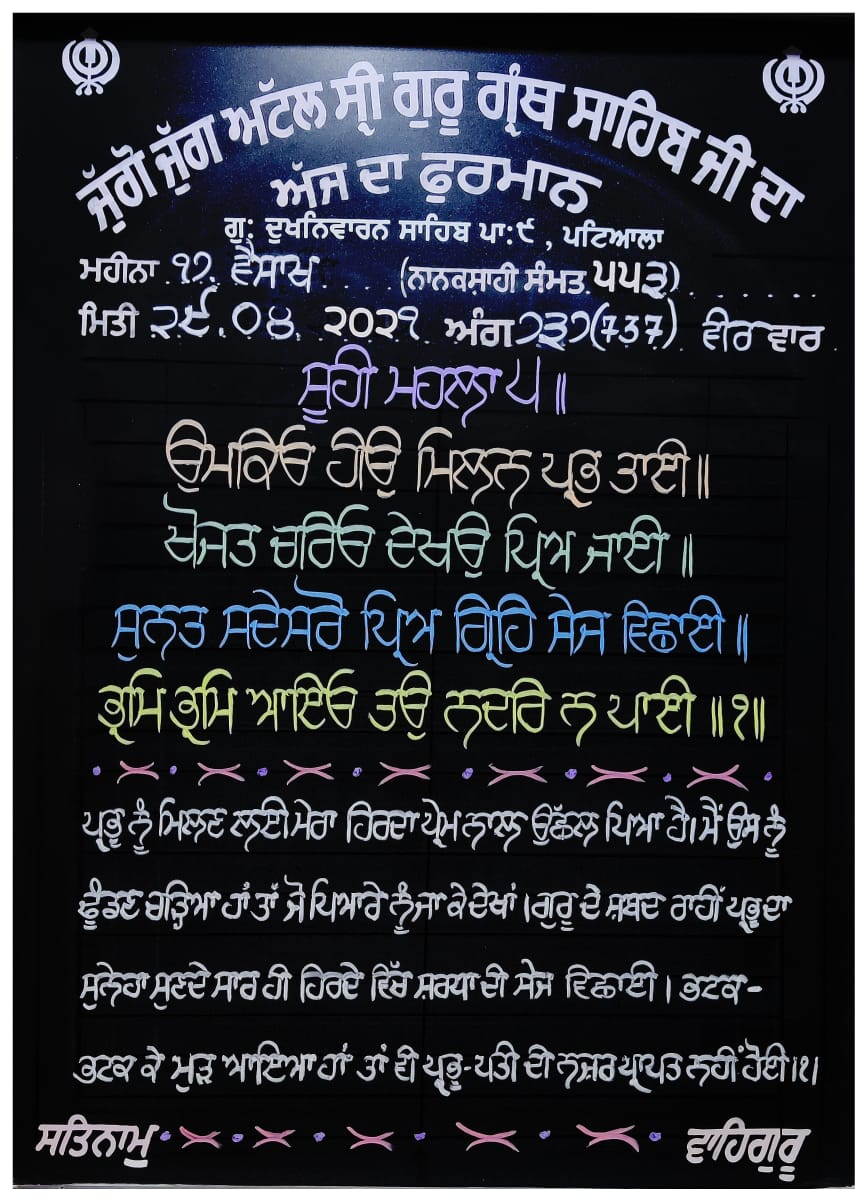 ਜੁੱਗੋ ਜੁੱਗ ਅੱਟਲ ਸ੍ਰੀ ਗੁਰੂ ਗ੍ਰੰਥ ਸਾਹਿਬ ਜੀ ਦਾ
ਅੱਜ ਦਾ ਫੁਰਮਾਨ
ਗੁ: ਦੁਖਨਿਵਾਰਨ ਸਾਹਿਬ ਪਾ:੯ , ਪਟਿਆਲਾ
ਮਹੀਨਾ ੧੭ ਵੈਸਾਖ (ਨਾਨਕਸ਼ਾਹੀ ਸੰਮਤ ੫੫੩)
ਮਿਤੀ ੨੯.੦੪. ੨੦੨੧ ਅੰਗ ੭੩੭(737) ਵੀਰ ਵਾਰ
ਸੂਹੀ ਮਹਲਾ ੫ ॥
ਉਮਕਿਓ ਹੀਉ ਮਿਲਨ ਪ੍ਰਭ ਤਾਈ॥
ਖੋਜਤ ਚਰਿਓ ਦੇਖਉ ਪ੍ਰਿਅ ਜਾਈ ॥
ਸੁਨਤ ਸਦੇਸਰੋ ਪ੍ਰਿਅ ਗ੍ਰਿਹਿ ਸੇਜ ਵਿਛਾਈ ॥
ਭ੍ਰਮਿ ਭ੍ਰਮਿ ਆਇਓ ਤਉ ਨਦਰਿ ਨ ਪਾਈ ॥੧॥
ਪ੍ਰਭੂ ਨੂੰ ਮਿਲਣ ਲਈ ਮੇਰਾ ਹਿਰਦਾ ਪ੍ਰੇਮ ਨਾਲ ਉੱਛਲ ਪਿਆ ਹੈ। ਮੈਂ ਉਸ ਨੂੰ
ਢੂੰਡਣ ਚੜ੍ਹਿਆ ਹਾਂ ਤਾਂ ਜੋ ਪਿਆਰੇ ਨੂੰ ਜਾ ਕੇ ਦੇਖਾਂ । ਗੁਰੂ ਦੇ ਸ਼ਬਦ ਰਾਹੀਂ ਪ੍ਰਭੂ ਦਾ
ਸੁਨੇਹਾ ਸੁਣਦੇ ਸਾਰ ਹੀ ਹਿਰਦੇ ਵਿੱਚ ਸ਼ਰਧਾ ਦੀ ਸੇਜ ਵਿਛਾਈ । ਭਟਕ-
ਭਟਕ ਕੇ ਮੁੜ ਆਇਆ ਹਾਂ ਤਾਂ ਵੀ ਪ੍ਰਭੂ-ਪਤੀ ਦੀ ਨਜ਼ਰ ਪ੍ਰਾਪਤ ਨਹੀਂ ਹੋਈ ।੧।
ਸਤਿਨਾਮੁ ਵਾਹਿਗੁਰੂ